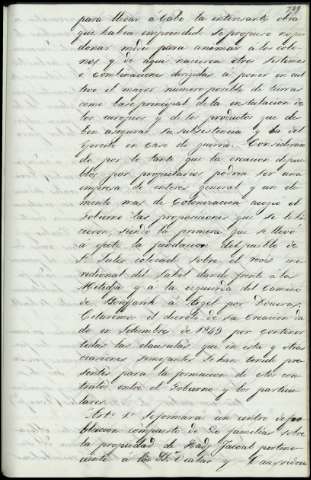 para llevar á Cabo la interesante obra
que habia emprendido se propuso no per
donar medio para animar a los colo-
nos y de aqui nacieron otros sistemas
o combinaciones dirigidas á poner en cul
tivo el mayor numero posible de tierras
como base principal de la instalacion de
los europeos y de los productos que de
ben asegurar su subsistencia y la del
Ejercito en caso de guerra. Considerán
dose por lo tanto que la creacion de pue
blos por propietarios podria ser una
empresa de interes general y un ele
mento mas de Colonizacion acogió el
Gobierno las proposiciones que se le hi
cieron, siendo la primera que se llevó
a efecto la fundacion del pueblo de
St. Jules colocado sobre el
meridional del Sahel dando frente á la
Metidja y á la izquierda del Camino
de á Argel por Douera.
Citaremos el decreto de su Creacion da
do en Setiembre de 1849 por contener
todas las clausulas que en esta y otras
ocasiones semejantes se han tenido pre
sentes para la formacion de estos con
tratos entre el Gobierno y los particu
lares.
Art.º 1º Se formará un centro de po
blacion compuesto de 20 familias sobre
la propiedad de Hadj pertene
ciente á los Sres. y